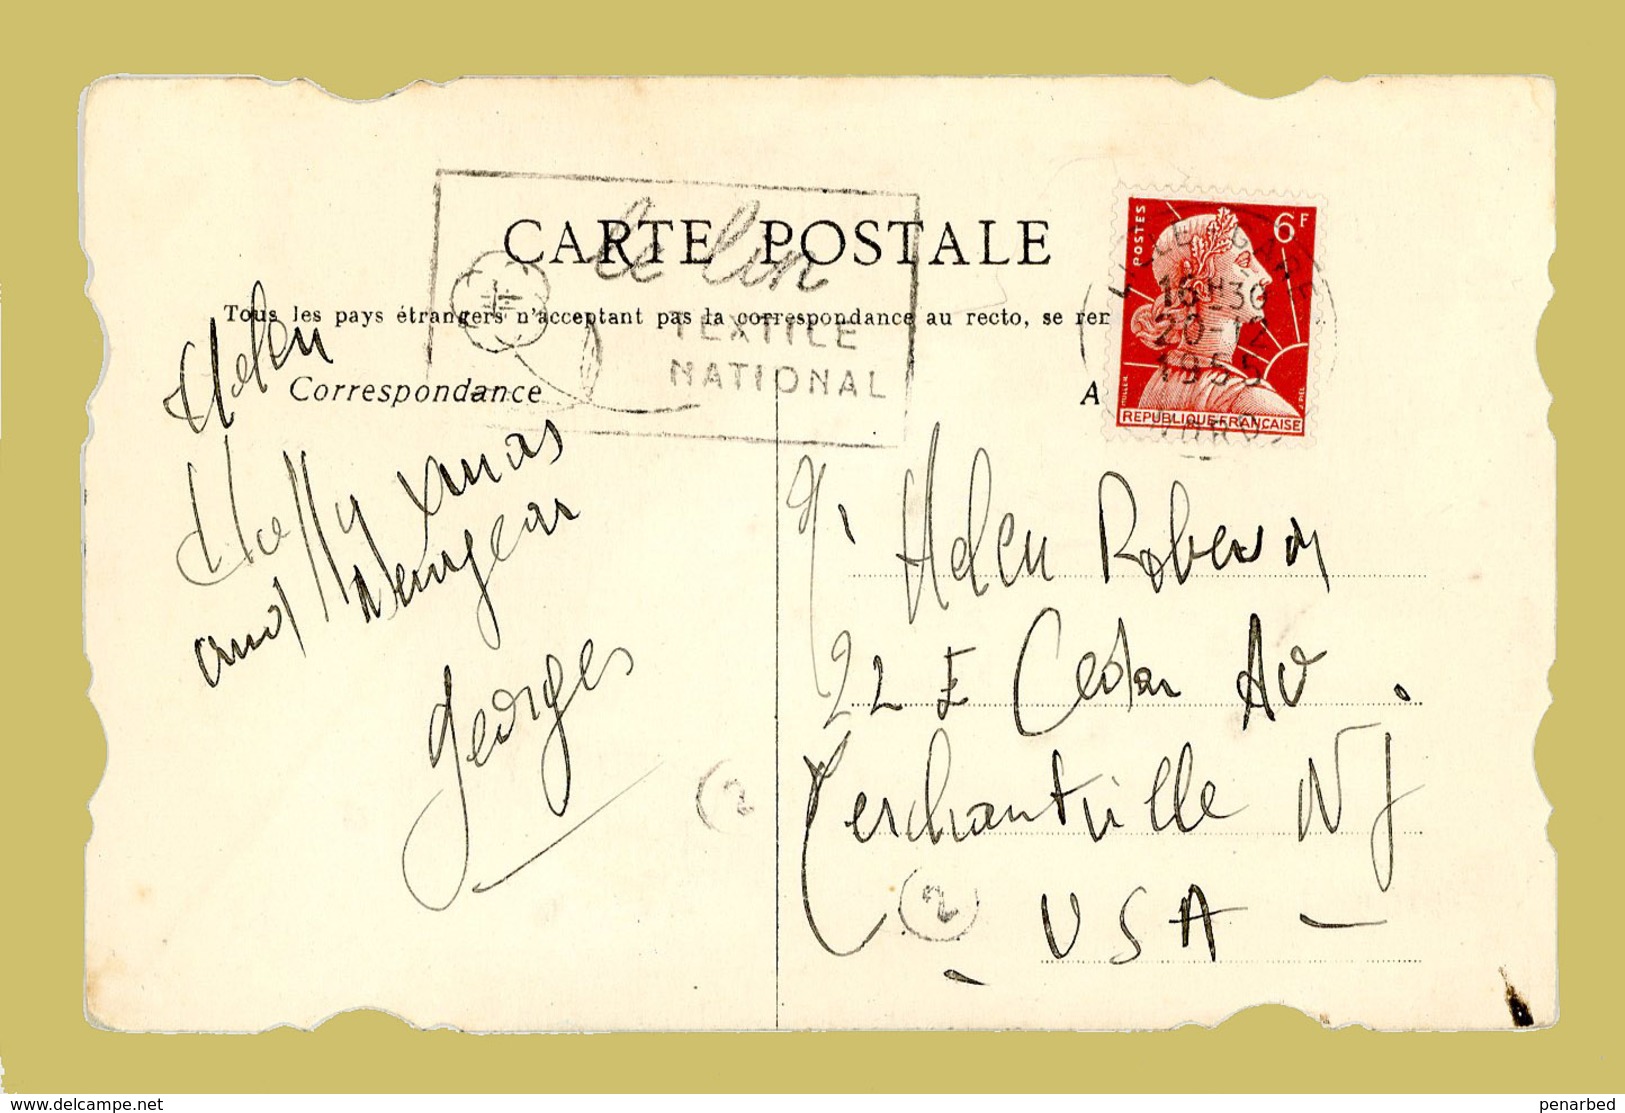 CARTE POSTALE
le lin
TEXTILE
NATIONAL
Tous les pays étrangers n'acceptant pas la correspondance au recto, se ren
Correspondance
A
POSTES
6F
MULLER
J. PIEL
REPUBLIQUE FRANÇAISE
LILLE GARE
16H30
20-12
1955
NORD
Helen
Happy Xmas
and Newyear
Georges
2
Helen Roberson
22 E Cedar Av.
Merchantville NJ
2
USA -
www.delcampe.net
penarbed